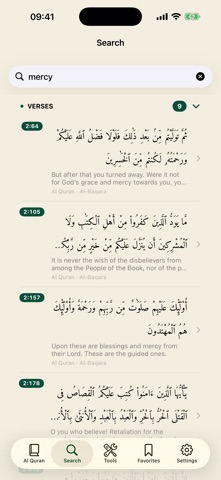 09:41
Search
mercy
VERSES
9
2:64
ثُمَّ تَوَلَّيْتُم مِّنۢ بَعْدِ ذَٰلِكَ فَلَوْلَا فَضْلُ ٱللَّهِ عَلَيْكُمْ
وَرَحْمَتُهُۥ لَكُنتُم مِّنَ ٱلْخَٰسِرِينَ
But after that you turned away. Were it not
for God's grace and mercy towards you, yo...
Al Quran · Al-Baqara
2:105
مَّا يَوَدُّ ٱلَّذِينَ كَفَرُوا۟ مِنْ أَهْلِ ٱلْكِتَٰبِ وَلَا
ٱلْمُشْرِكِينَ أَن يُنَزَّلَ عَلَيْكُم مِّنْ خَيْرٍ مِّن رَّبِّكُمْ...
It is never the wish of the disbelievers from
among the People of the Book, nor of the p...
Al Quran · Al-Baqara
2:157
أُو۟لَٰٓئِكَ عَلَيْهِمْ صَلَوَٰتٌ مِّن رَّبِّهِمْ وَرَحْمَةٌ وَأُو۟لَٰٓئِكَ
هُمُ ٱلْمُهْتَدُونَ
Upon these are blessings and mercy from
their Lord. These are the guided ones.
Al Quran · Al-Baqara
2:178
يَٰٓأَيُّهَا ٱلَّذِينَ ءَامَنُوا۟ كُتِبَ عَلَيْكُمُ ٱلْقِصَاصُ فِى
ٱلْقَتْلَى ٱلْحُرُّ بِٱلْحُرِّ وَٱلْعَبْدُ بِٱلْعَبْدِ وَٱلْأُنثَىٰ بِٱلْأُ...
O you who believe! Retaliation for the
Al Quran
Search
Tools
Favorites
Settings